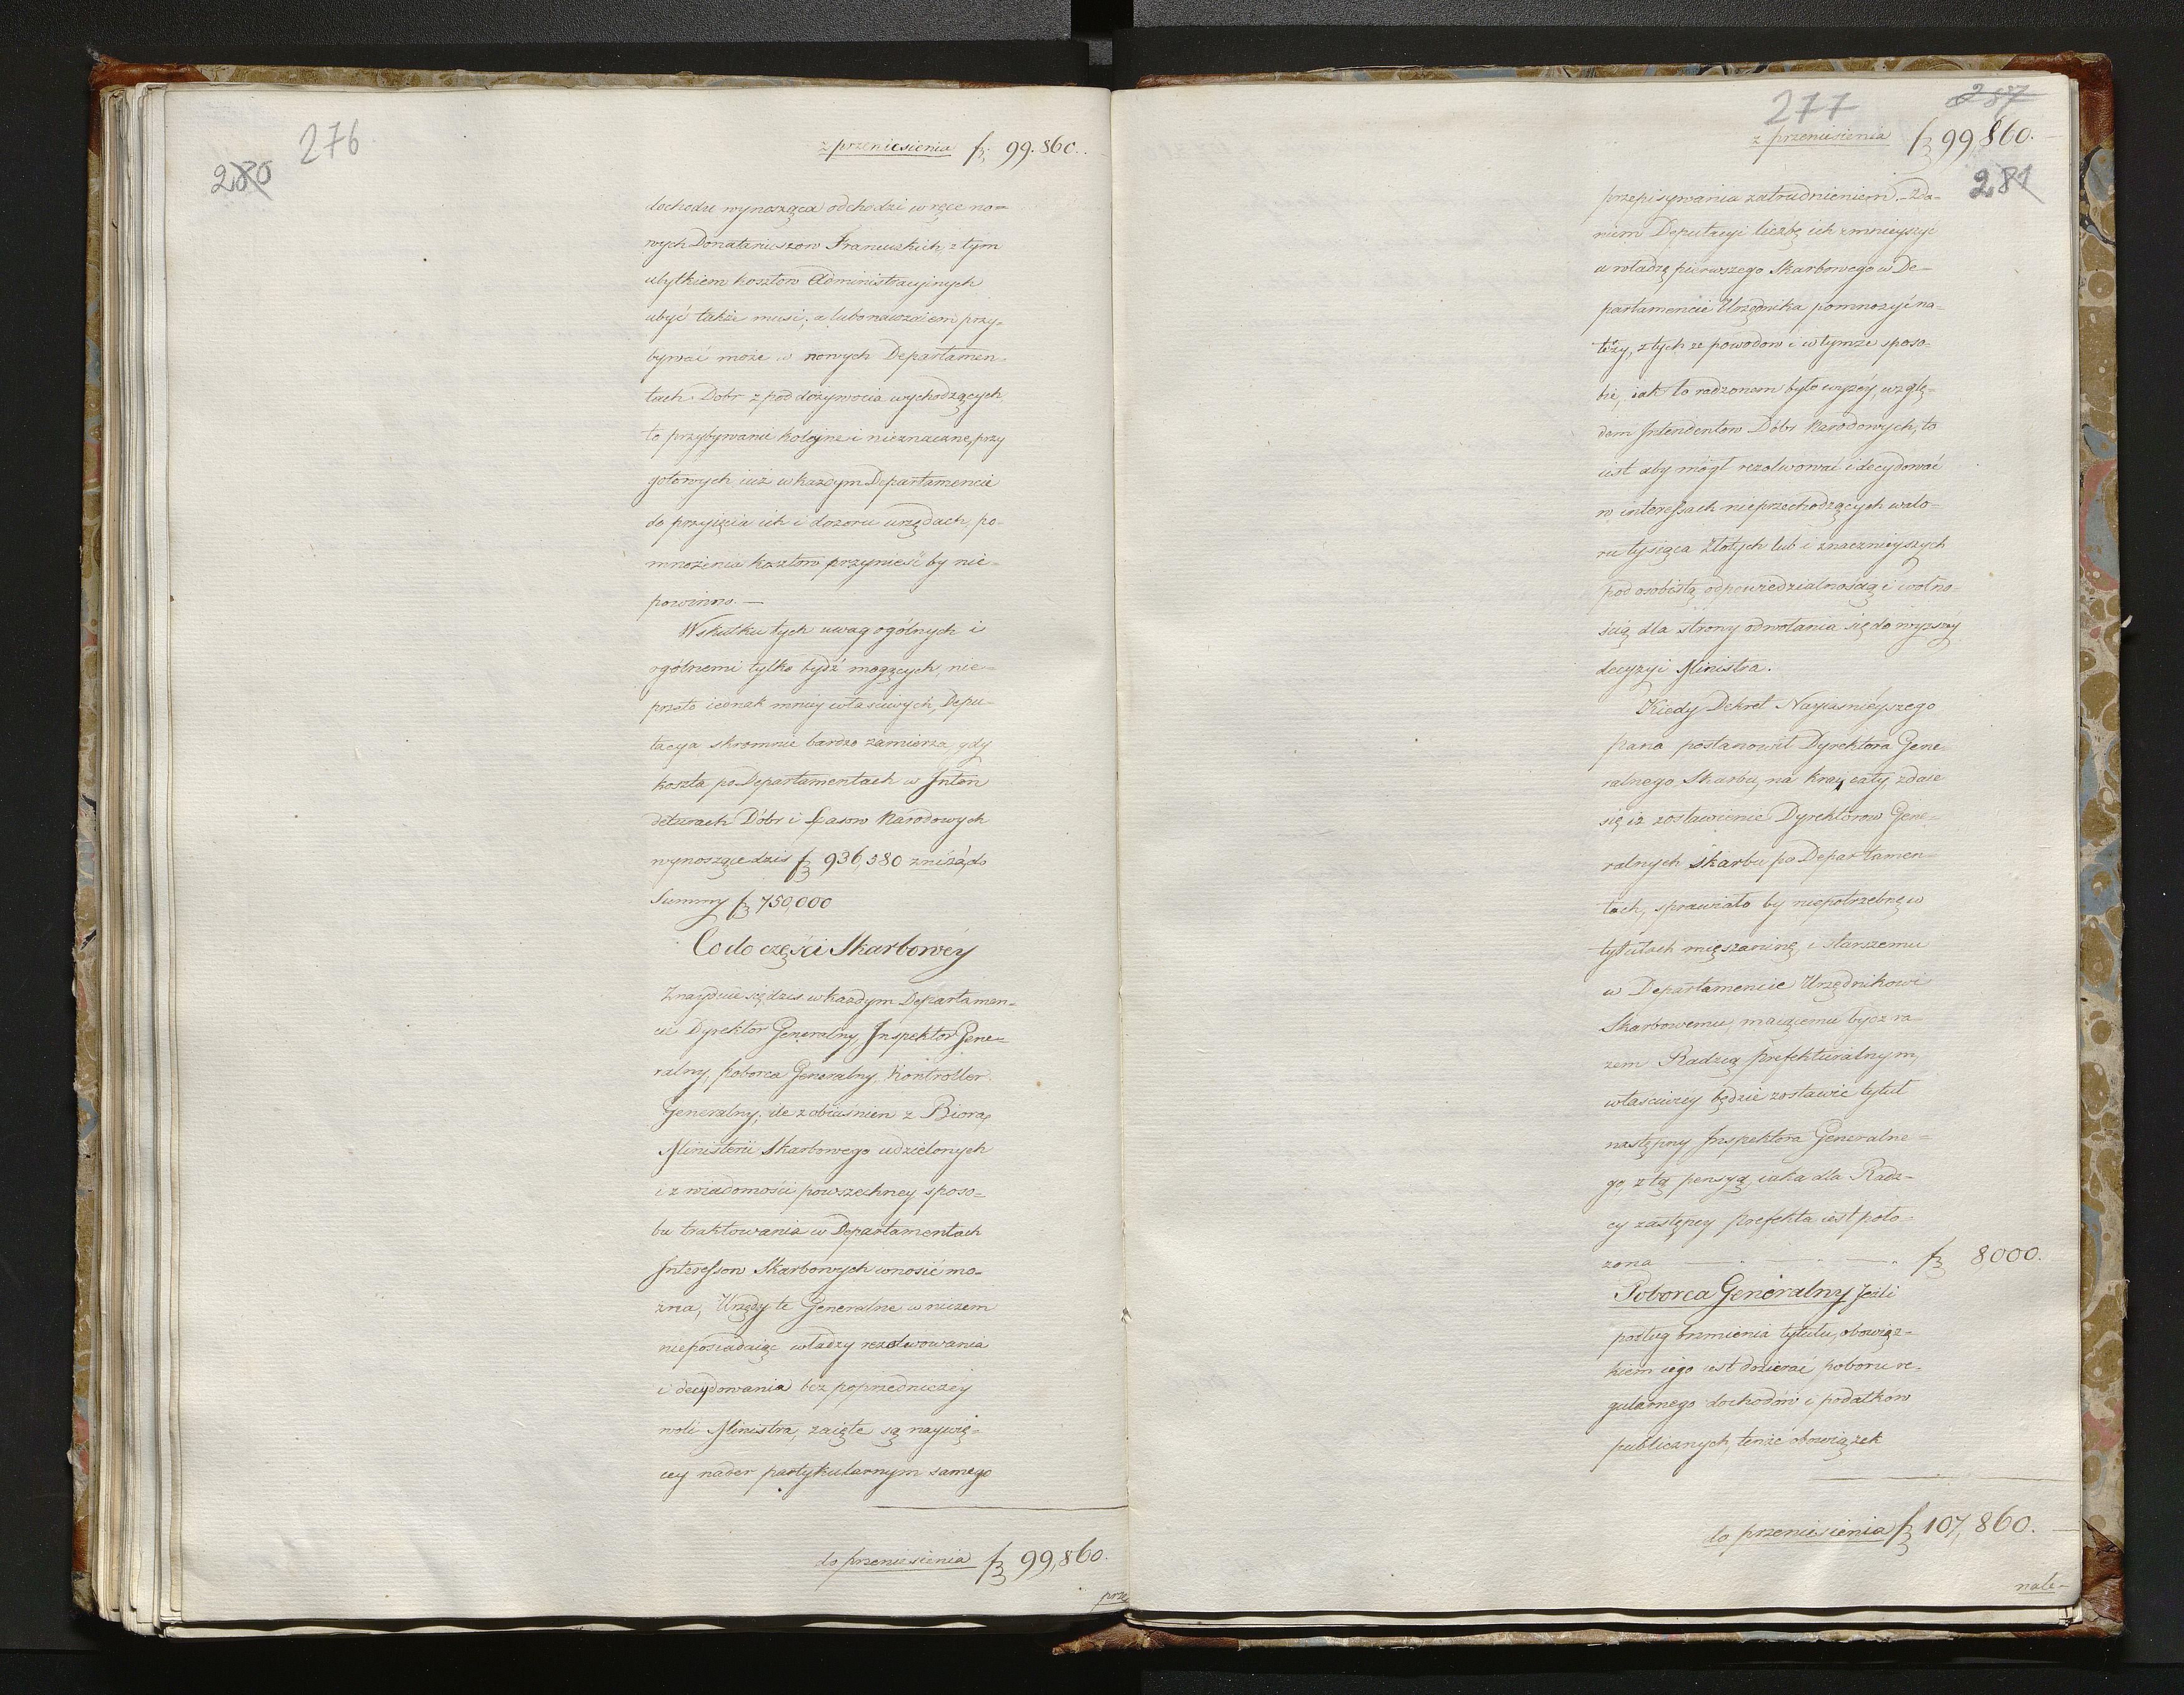 276
280
z przeniesienia f 99.860.
dochodu wynosząca odchodzi w ręce no=
wych Donatariuszow Francuzkich, z tym
ubytkiem kosztow Administracyinych
ubyć także musi; a lubo nawzaiem przy=
bywać może w nowych Departamen=
tach Dobr z pod dożywocia wychodzących
to przybywanie koleyne i nieznaczne, przy
gotowych iuż w każdym Departamencie
do przyięcia ich i dozoru urzędach, po=
mnożenia kosztow przynieść by nie=
powinno.—
W skutku tych uwag ogólnych i
ogólnemi tylko bydź mogących, nie=
przeto iednak mniey właściwych, Depu=
tacya skromnie bardzo zamierza, gdy
koszta po Departamentach w Inten
deturach Dóbr i Lasow Narodowych
wynoszące dzis f 936,580 zniża do
Summy f 750,000
Co do części Skarbowéy
Znayduie się dzis w każdym Departamen=
cie Dyrektor Generalny, Inspektor Gene=
ralny, poborca Generalny, Kontroller
Generalny; ile z obiaśnien z Biora
Ministerii Skarbowego udzielonych
i z wiadomości powszechney sposo=
bu traktowania w Departamentach
Interessow Skarbowych wnosić mo=
żna, Urzędy te Generalne w niczem
nieposiadaiąc władzy rezolwowania
i decydowania bez poprzedniczey
woli Ministra, zaięte są naywię=
cey nader partykularnym samego
do przeniesienia f 99,860.
prze
277
287
z przeniesienia f 99,860.
281
przepisywania zatrudnieniem.— Zda=
niem Deputacyi liczbę ich zmnieyszyć
a władzę pierwszego Skarbowego w De=
partamencie Urzędnika pomnożyć na=
leży, z tych że powodow i w tymże sposo=
bie, iak to radzonem było wyżéy, wzglę=
dem Intendentow Dóbr Narodowych, to
iest aby mógł rezolwować i decydować
w interessach nieprzechodzących walo=
ru tysiąca Złotych lub i znacznieyszych
pod osobistą odpowiedzialnością i wolno=
ścią dla strony odwołania się do wyższéy
decyzyi Ministra.
Kiedy Dekret Nayiaśnieyszego
pana postanowił Dyrektora Gene=
ralnego Skarbu, na kray cały, zdaie
się iż zostawienie Dyrektorow Gene=
ralnych skarbu po Departamen=
tach, sprawiało by niepotrzebną w
tytułach mięszaninę, i starszemu
w Departamencie Urzędnikowi
Skarbowemu, maiącemu być za ra=
zem Radzcą prefekturalnym,
właściwiey będzie zostawić tytuł
następny Inspektora Generalne=
go, z tą pensyą, iaka dla Radz=
cy zastępcy prefekta iest poło=
żona — . — . — . f 8,000.
Poborca Generalny Jeżli
podług brzmienia tytułu, obowiąz=
kiem iego iest dozierać poboru re=
gularnego dochodów i podatkow
publicznych, tenże obowiązek
do przeniesienia f 107,860.
nale=